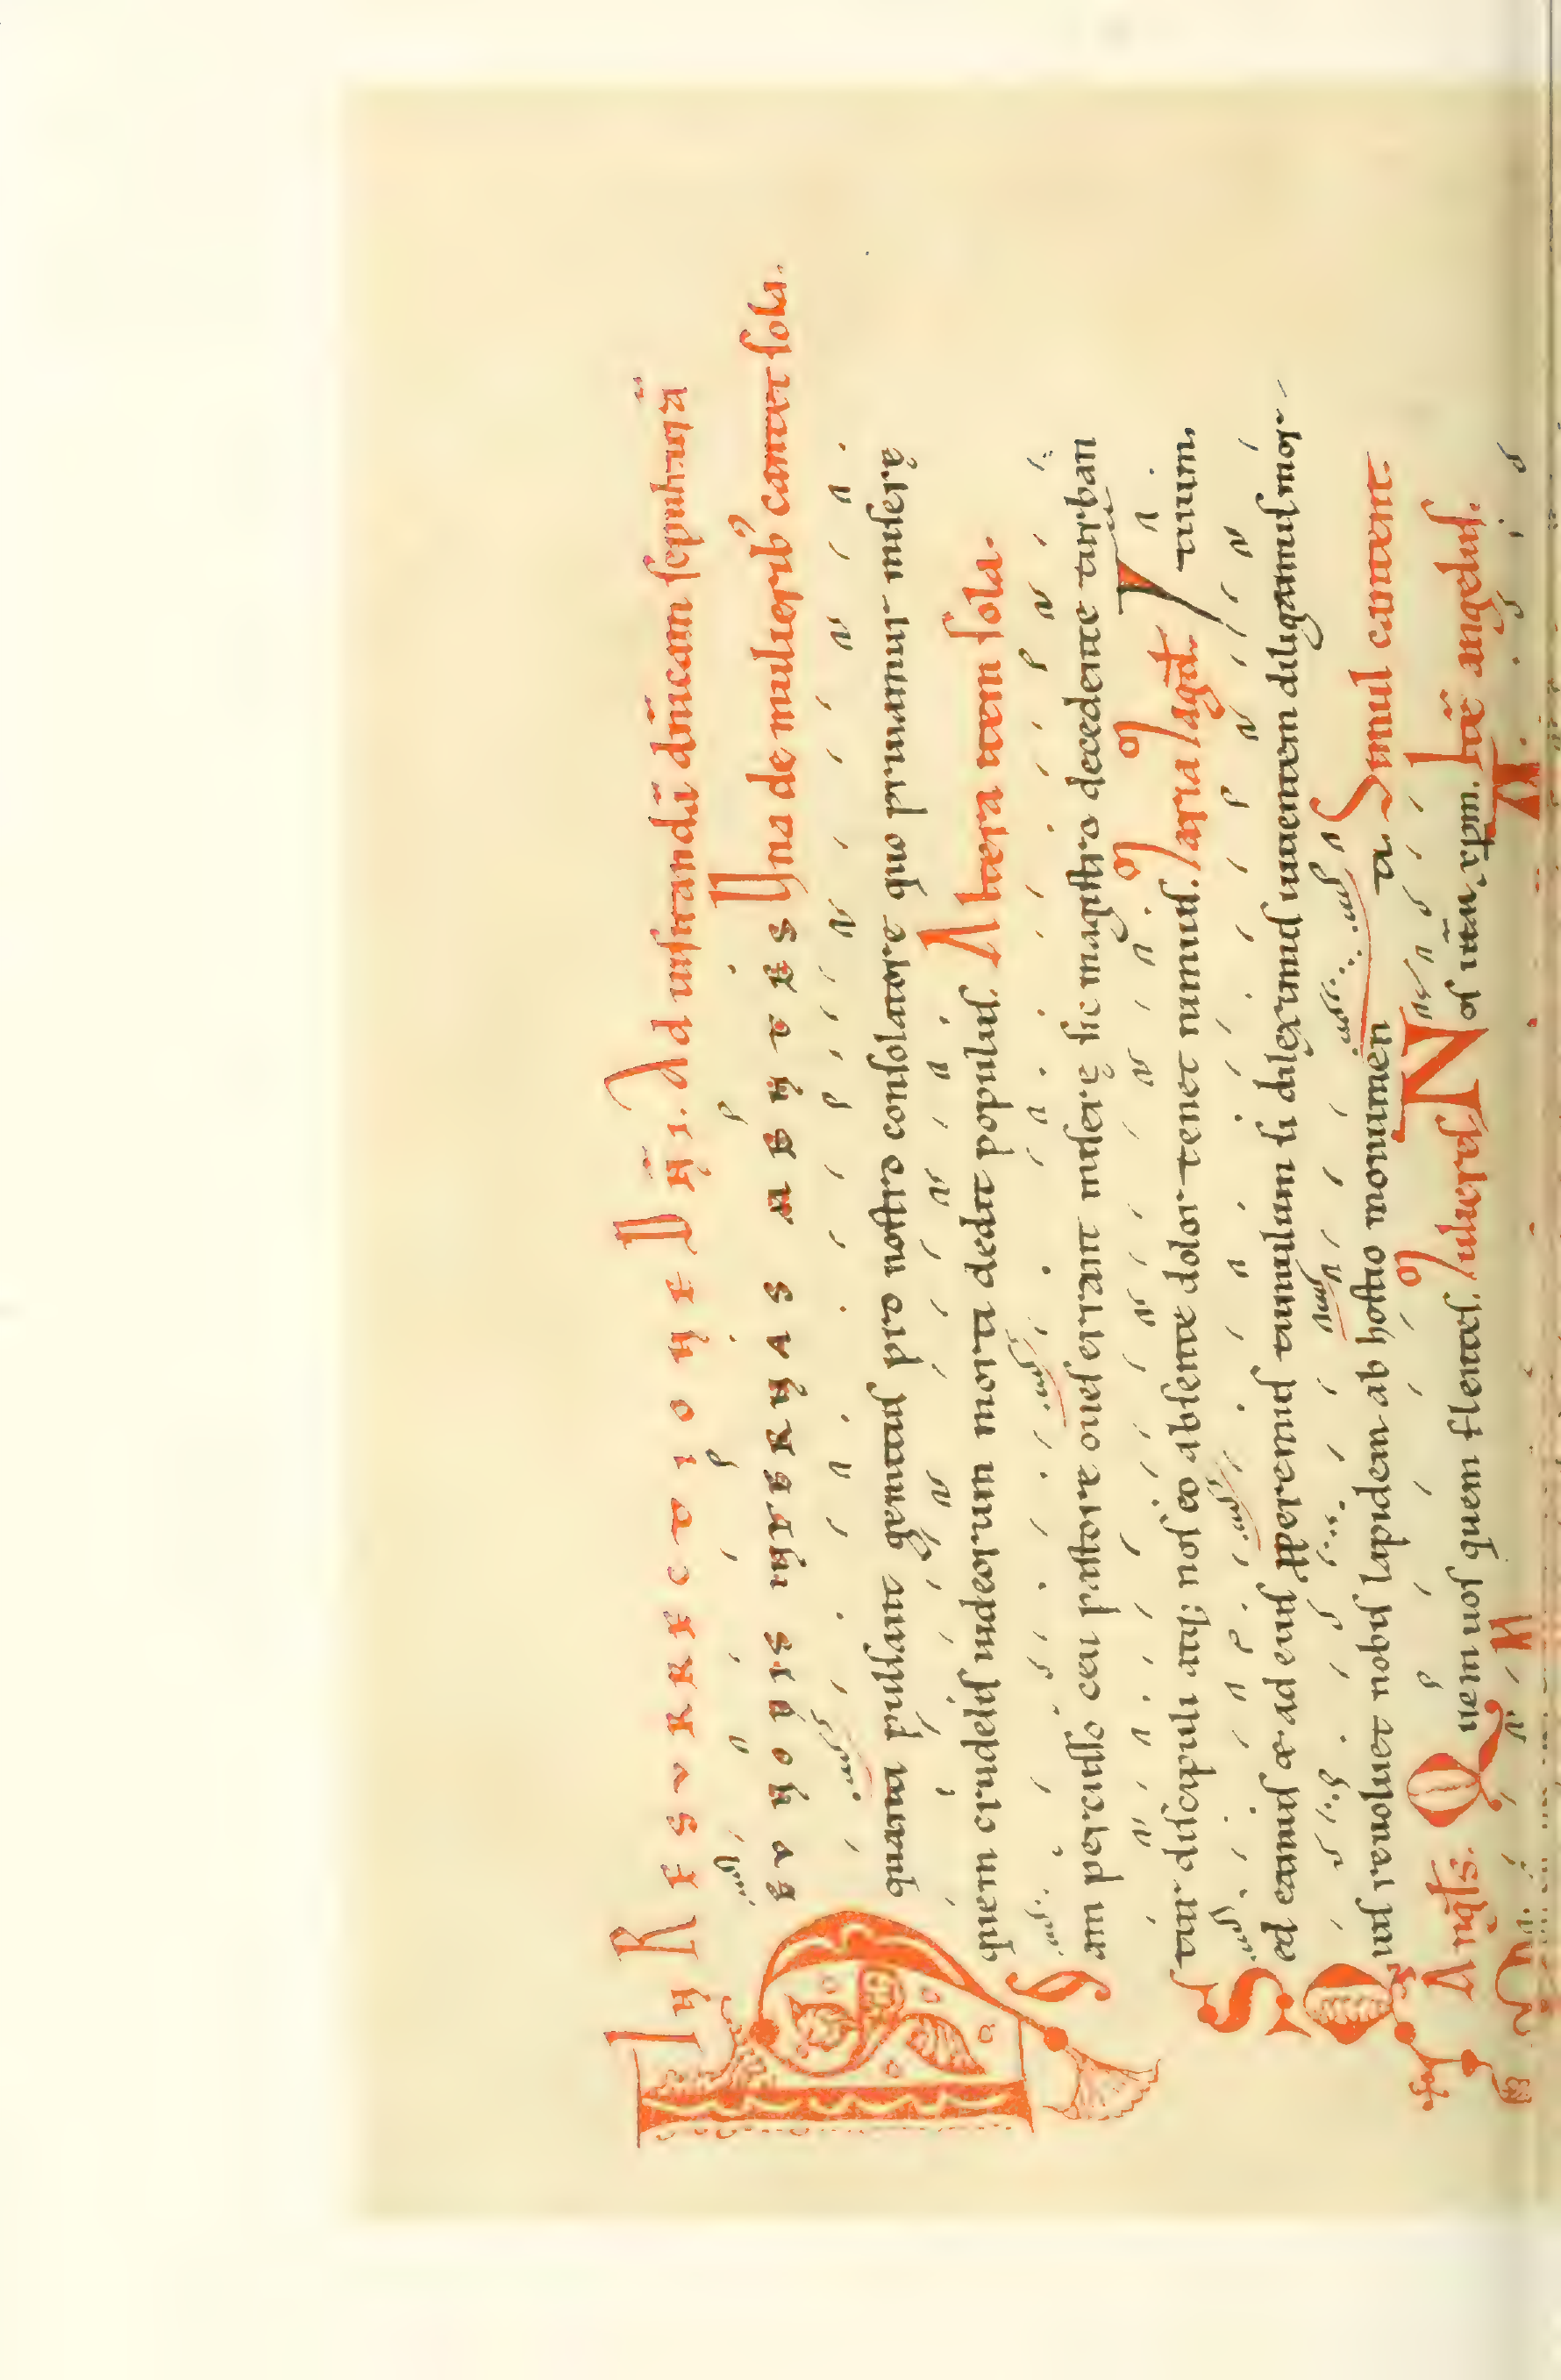 IN RESURRECTIONE DN̄I. Ad uisitandā dn̄icam sepulturā
HEV NOBIS INTERNAS MENTES Una de mulierib' cantet sola.
quanti pulsant gemitus pro nostro consolatore quo priuamur miserę
quem crudelis iudeorum morti dedit populus. Altera item sola.
Iam percusso ceu pastore oues errant miserę sic magistro decedente turban
tur discipuli atq; nos eo absente dolor tenet nimius. Maria Magd̄. tuum.
Sed eamus & ad eius ꝓperemus tumulum si dileximus uiuentem diligamus mor-
Quis reuoluet nobis lapidem ab hostio monumen ti. Simul cantent.
Angl̄s. Quem uos quem flentes. Mulieres Nos ihm̄ xp̄m. Itē angelus.